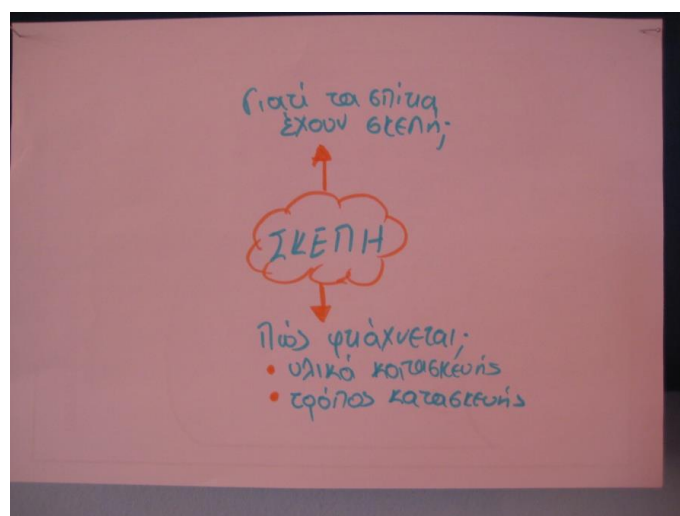 Γιατί τα σπίτια
έχουν σκεπή;
ΣΚΕΠΗ
Πώς φτιάχνεται;
• υλικά κατασκευής
• τρόπος κατασκευής